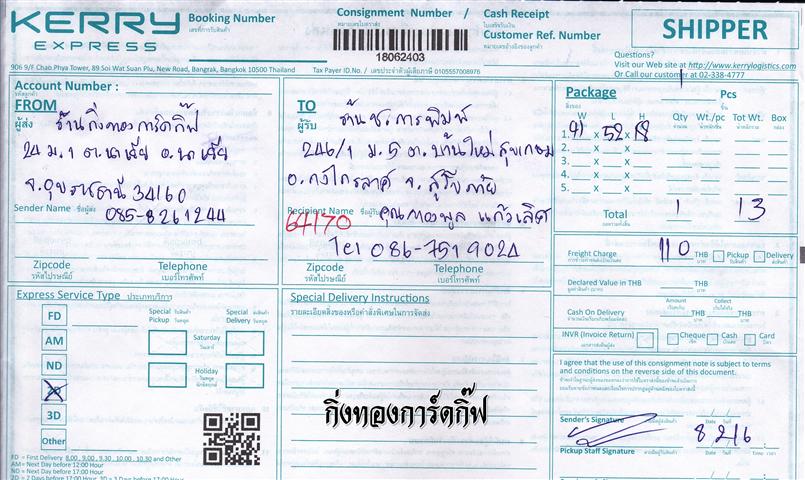 KERRY EXPRESS
Booking Number
เลขที่การรับสินค้า
Consignment Number /
หมายเลขใบตราส่ง
18062403
Cash Receipt
ใบเสร็จรับเงิน
Customer Ref. Number
หมายเลขอ้างอิงของลูกค้า
SHIPPER
Questions?
Visit our Web site at http://www.kerrylogistics.com
Or Call our customer at 02-338-4777
906 9/F Chao Phya Tower, 89 Soi Wat Suan Plu, New Road, Bangrak, Bangkok 10500 Thailand
Tax Payer ID.No. / เลขประจำตัวผู้เสียภาษี 0105557008976
Account Number :
รหัสลูกค้า
FROM
ผู้ส่ง
ร้านกิ่งทองการ์ดกิ๊ฟ
24 ม.1 ต.นาเยีย อ.นาเยีย
จ.อุบลราชธานี 34160
Sender Name ชื่อผู้ส่ง
085-8261244
Zipcode
รหัสไปรษณีย์
Telephone
เบอร์โทรศัพท์
TO
ผู้รับ
ร้าน ช.การพิมพ์
246/1 ม.5 ต.บ้านใหม่สุขเกษม
อ.กงไกรลาศ จ.สุโขทัย
Recipient Name ชื่อผู้รับ
64170
คุณทองพูล แก้วเลิศ
Tel 086-7519024
Zipcode
รหัสไปรษณีย์
Telephone
เบอร์โทรศัพท์
Package
สิ่งของ
Pcs
ชิ้น
W L H
Qty Wt./pc Tot Wt. Box
1. 41 x 52 x 18
2. x x
3. x x
4. x x
5. x x
Total 1 13
Freight Charge 110 THB
Pickup
Delivery
Declared Value in THB
Cash On Delivery
Amount
Collect
THB
THB
INVR (Invoice Return)
Cheque
Cash
Card
Express Service Type ประเภทบริการ
FD
AM
ND
2D
3D
Other
Special Pickup
Special Delivery
Saturday
วันเสาร์
Holiday
วันหยุด
Special Delivery Instructions
กิ่งทองการ์ดกิ๊ฟ
I agree that the use of this consignment note is subject to terms
and conditions on the reverse side of this document.
Sender's Signature
8 2 16
Pickup Staff Signature
FD = First Delivery 8.00 , 9.00 , 9.30 , 10.00 , 10.30 and Other
AM= Next Day before 12:00 Hour
ND = Next Day before 17:00 Hour
2D = 2 Days before 17:00 Hour, 3D = 3 Days before 17:00 Hour